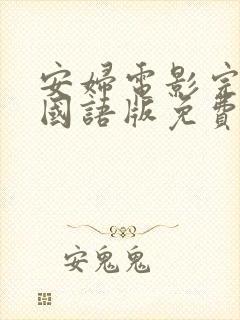 安婦電影完
國語版免費
安鬼鬼